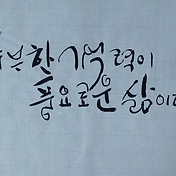 한 기억력이
풍요로운 삶이